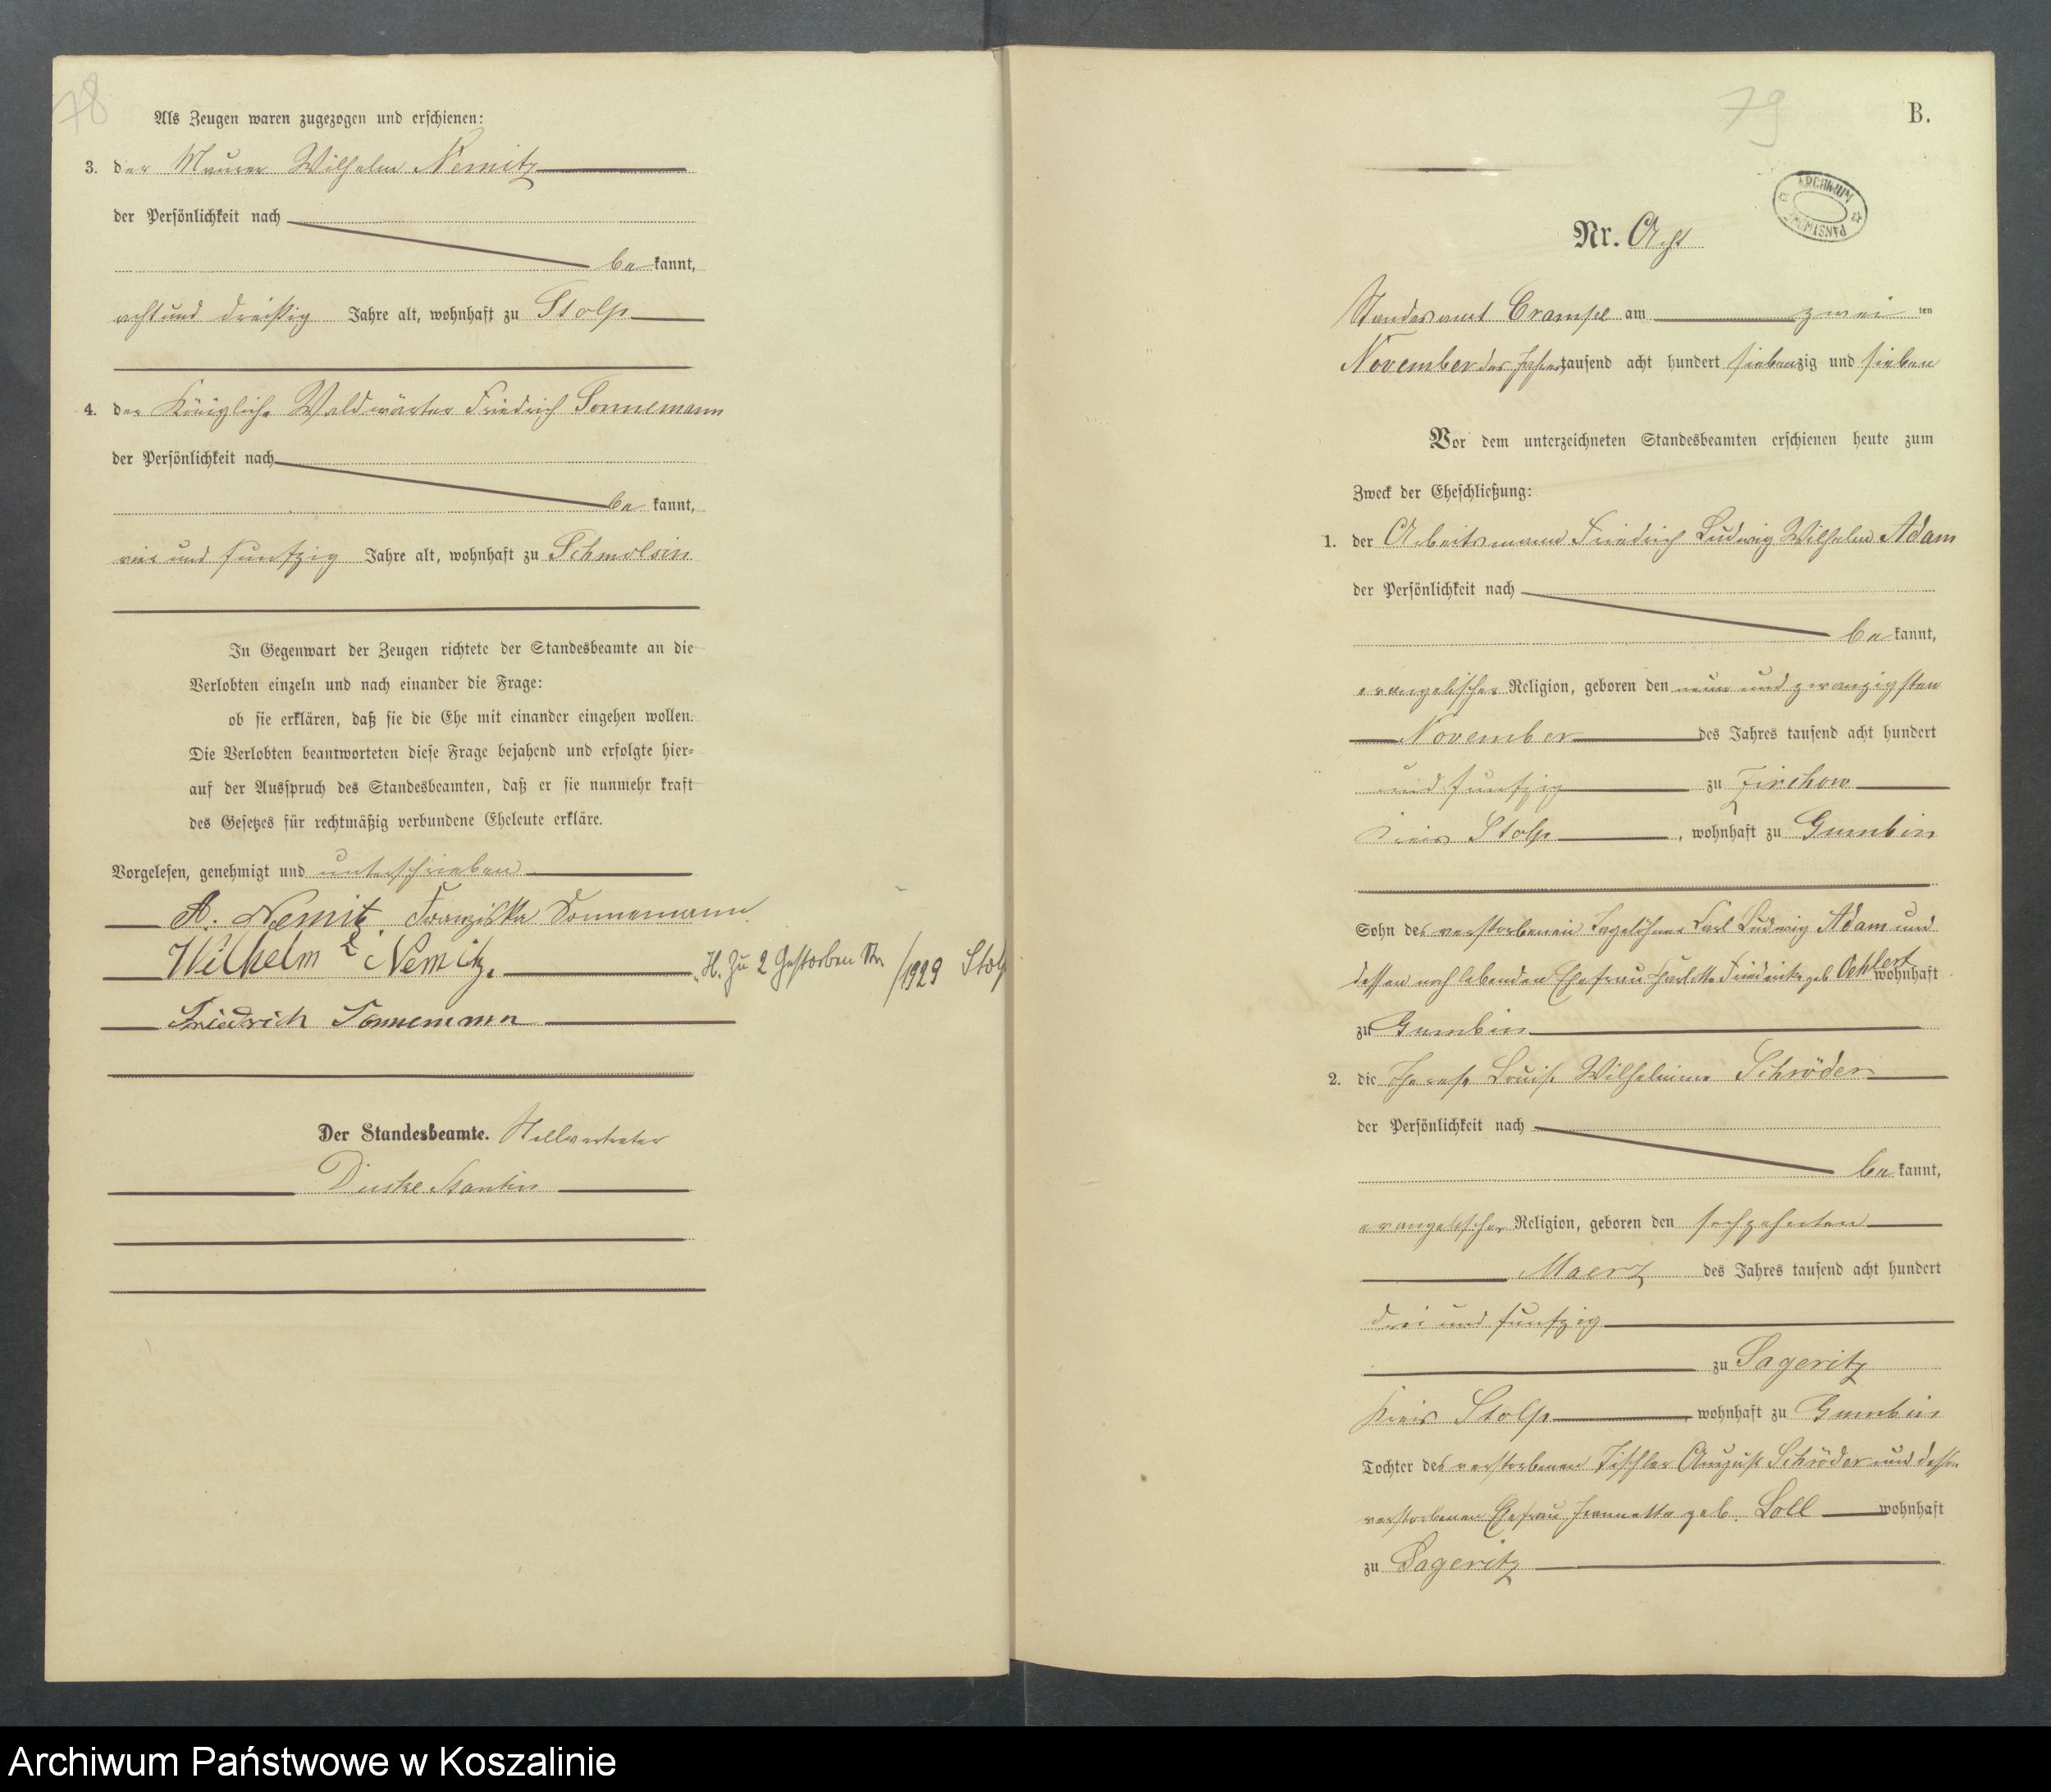 78
Als Zeugen waren zugezogen und erschienen:
3. der Maurer Wilhelm Nemitz
der Persönlichkeit nach
bekannt,
achtund dreißig Jahre alt, wohnhaft zu Stolp
4. der Königliche Waldwärter Friedrich Sonnemann
der Persönlichkeit nach
bekannt,
vier und funfzig Jahre alt, wohnhaft zu Schmolsin
In Gegenwart der Zeugen richtete der Standesbeamte an die
Verlobten einzeln und nach einander die Frage:
ob sie erklären, daß sie die Ehe mit einander eingehen wollen.
Die Verlobten beantworteten diese Frage bejahend und erfolgte hier-
auf der Ausspruch des Standesbeamten, daß er sie nunmehr kraft
des Gesetzes für rechtmäßig verbundene Eheleute erkläre.
Vorgelesen, genehmigt und unterschrieben
A. Nemitz Franziska Sonnemann
Wilhelm Nemitz.
H. zu 2 Gestorben Nr. /1929 Stolp
Friedrich Sonnemann
Der Standesbeamte. Stellvertreter
79
B.
ARCHIWUM PAŃSTWOWE
Nr. Acht
Standesamt Crampe am zwei ten
November des Jahres tausend acht hundert siebenzig und sieben
Vor dem unterzeichneten Standesbeamten erschienen heute zum
Zweck der Eheschließung:
1. der Arbeitsmann Friedrich Ludwig Wilhelm Adam
der Persönlichkeit nach
bekannt,
evangelischer Religion, geboren den neun und zwanzigsten
November des Jahres tausend acht hundert
und funfzig zu Zirchow
Kreis Stolp, wohnhaft zu Gumbin
Sohn des verstorbenen Tagelöhner Carl Ludwig Adam und
dessen noch lebenden Ehefrau Friederike geb. Oehlert wohnhaft
zu Gumbin
2. die Therese Louise Wilhelmine Schröder
der Persönlichkeit nach
bekannt,
evangelischer Religion, geboren den sechzehnten
Maerz des Jahres tausend acht hundert
drei und funfzig
zu Sageritz
Kreis Stolp, wohnhaft zu Gumbin
Tochter des verstorbenen Tischler August Schröder und dessen
verstorbenen Ehefrau Jeannette geb. Soll wohnhaft
zu Sageritz
Archiwum Państwowe w Koszalinie